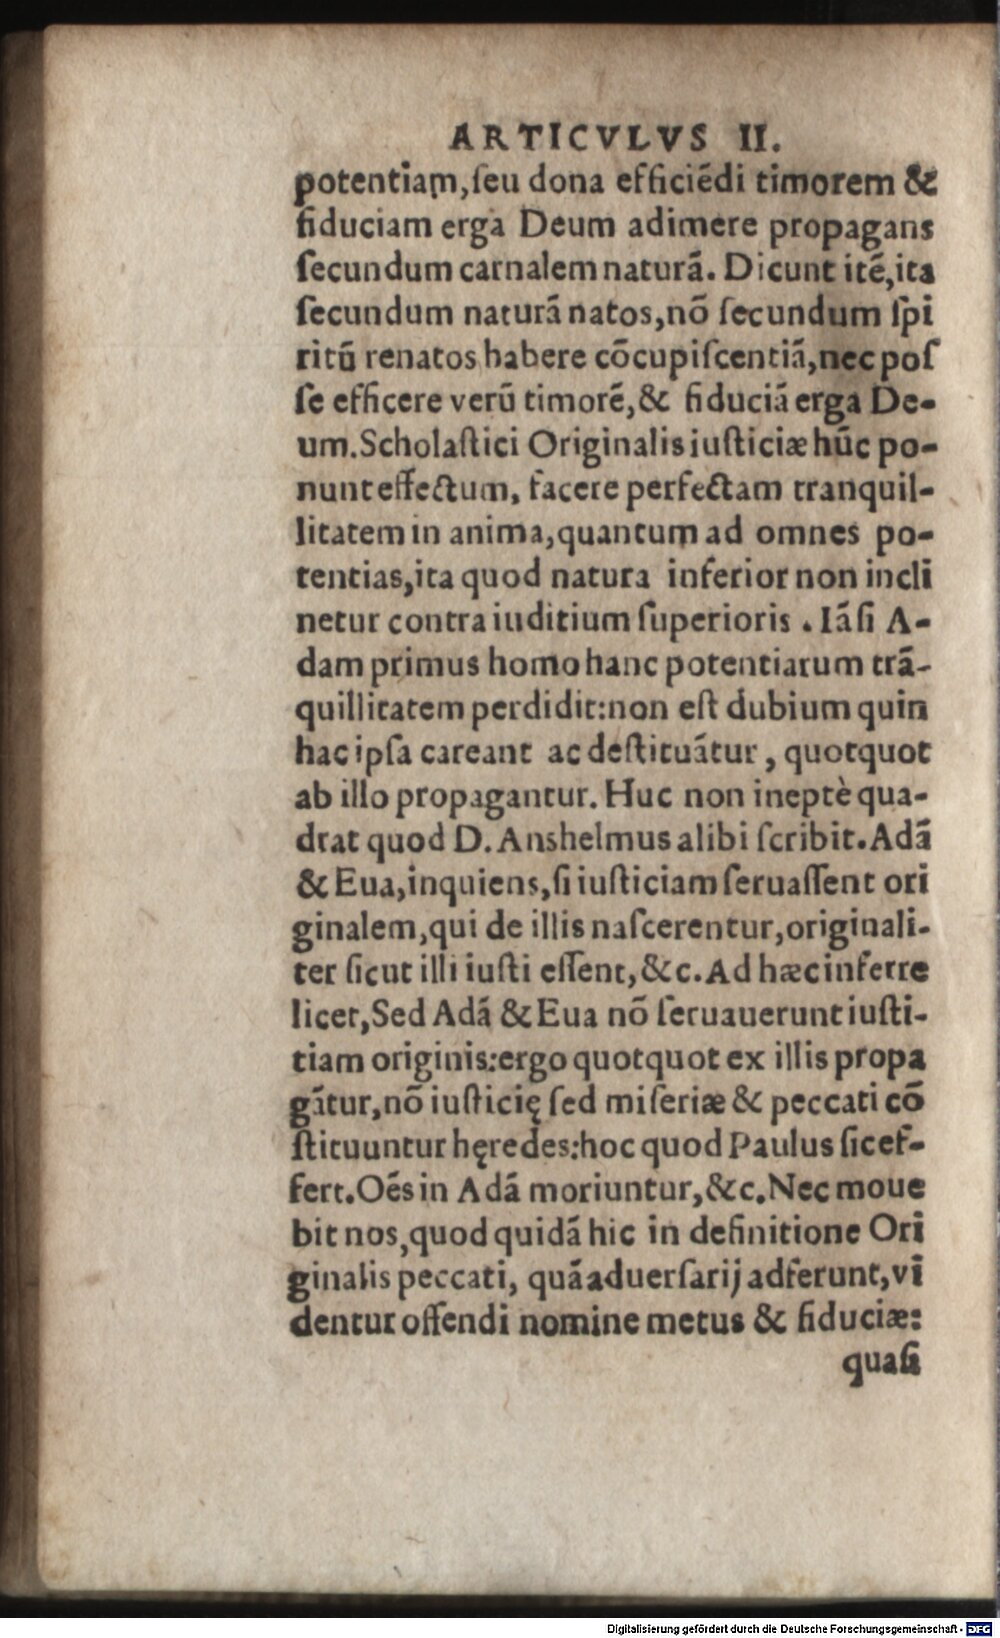 ARTICVLVS II.
potentiam,ſeu dona efficiẽdi timorem &
fiduciam erga Deum adimere propagans
ſecundum carnalem naturã. Dicunt itẽ,ita
ſecundum naturã natos,nõ ſecundum ſpi
ritũ renatos habere cõcupiſcentiã,nec poſ
ſe efficere verũ timorẽ,& fiduciã erga De-
um.Scholaſtici Originalis iuſticiæ hũc po-
nunt effectum, facere perfectam tranquil-
litatem in anima,quantum ad omnes po-
tentias,ita quod natura inferior non incli
netur contra iuditium ſuperioris . Iã ſi A-
dam primus homo hanc potentiarum trã-
quillitatem perdidit:non eſt dubium quin
hac ipſa careant ac deſtituãtur , quotquot
ab illo propagantur. Huc non ineptè qua-
drat quod D. Anshelmus alibi ſcribit.Adã
& Eua,inquiens,ſi iuſticiam ſeruaſſent ori
ginalem,qui de illis naſcerentur,originali-
ter ſicut illi iuſti eſſent,&c.Ad hæc inferre
licet,Sed Adã & Eua nõ ſeruauerunt iuſti-
tiam originis:ergo quotquot ex illis propa
gãtur,nõ iuſticię ſed miſeriæ & peccati cõ
ſtituuntur hęredes:hoc quod Paulus ſic ef-
fert.Oẽs in Adã moriuntur,&c.Nec moue
bit nos,quod quidã hic in definitione Ori
ginalis peccati, quã aduerſarij adferunt,vi
dentur offendi nomine metus & fiduciæ:
quaſi
Digitalisierung gefördert durch die Deutsche Forschungsgemeinschaft - DFG